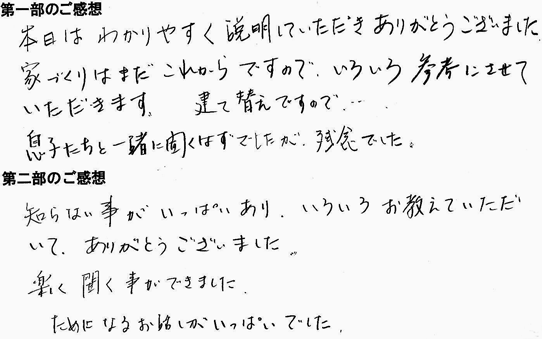 第一部のご感想
本日は わかりやすく 説明していただき ありがとうございました
家づくりはまだ これから ですので、いろいろ 参考にさせて
いただきます。 建て替えですので…
息子たちと一緒に聞くはずでしたが、残念でした。
第二部のご感想
知らない事が いっぱいあり、いろいろ お教えていただ
いて、ありがとうございました。
楽しく 聞く事ができました。
ためになるお話しがいっぱいでした。